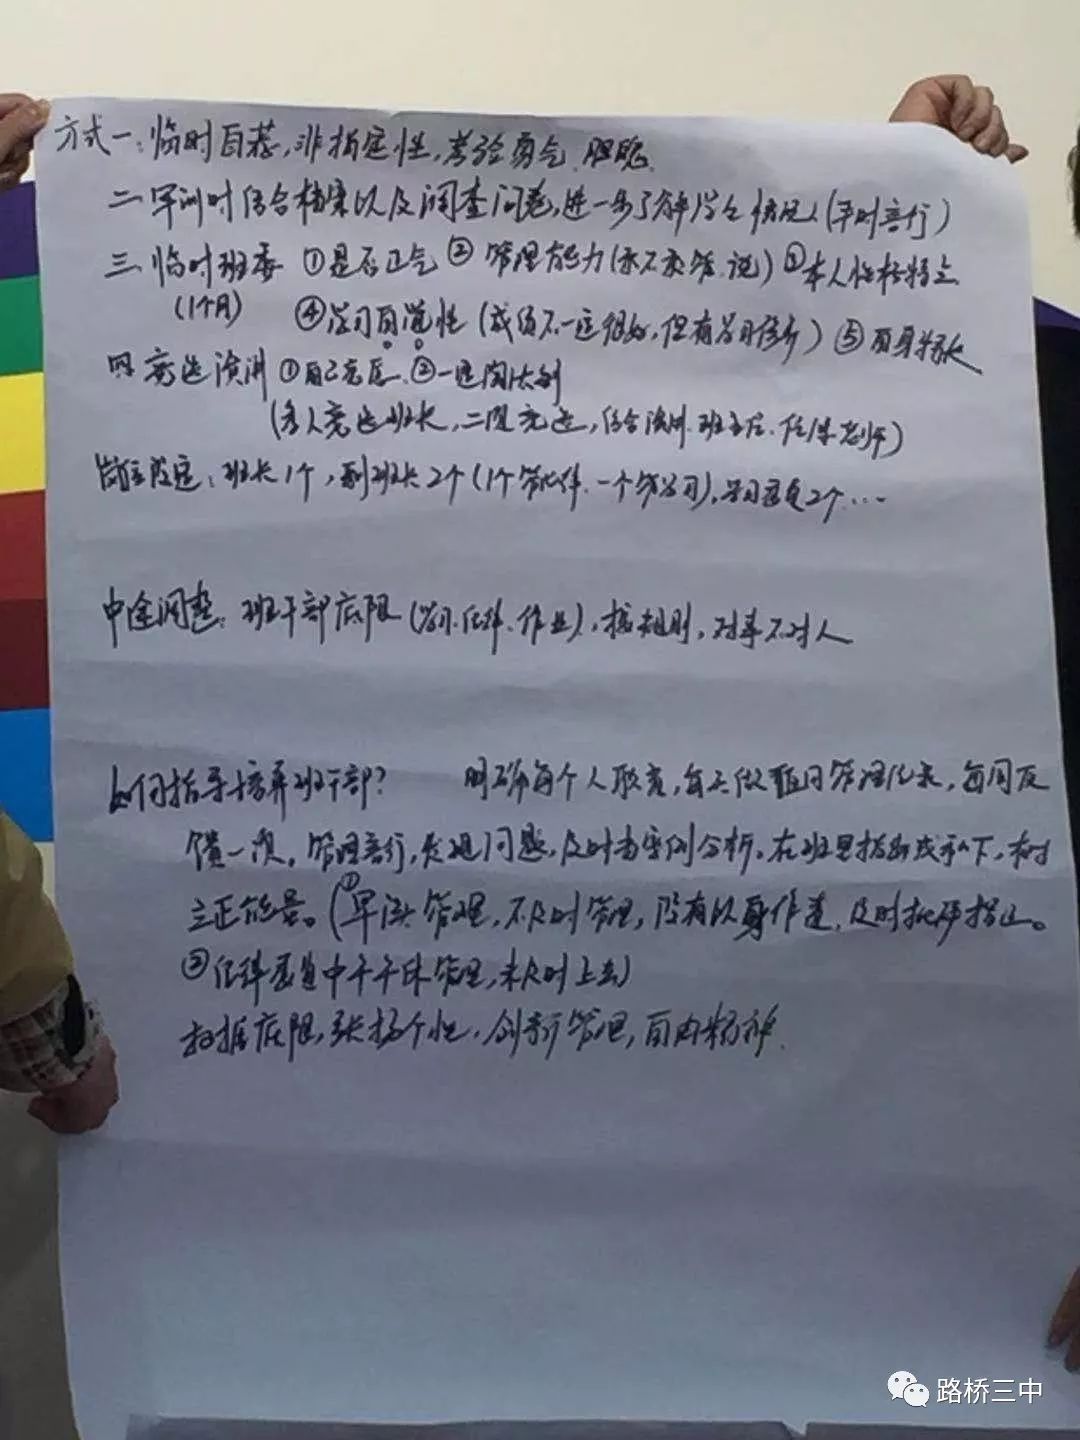 方式一:临时自荐,非指定性,考验勇气、胆魄.
二 军训时结合档案以及调查问卷,进一步了解学生情况(平时言行)
三 临时班委 ①是否正气 ② 管理能力(承不承管、说) ③本人性格特点
(1个月) ④学习自觉性(成绩不一定很好,但有学习传)⑤自身特长
四 竞选演讲 ①自己竞层、②一定淘汰制
(多人竞选班长,二周竞选,结合演讲、班主任、任课老师)
岗位设定:班长1个,副班长2个(1个管纪律、一个管学习),学习委员2个...
中途调整:班干部底限(学习、任课、作业),按规则,对事不对人
如何指导培养班干部? 明确每个人职责,每天做值日管理记录,每周反
馈一次。管理言行,发现问题,及时为案例分析。在班里指出或私下,树
立正能量。(①早读管理,不及时管理,没有以身作责,及时批评指正。
②任科通道中干干休管理,未及时上去)
根据底限,张扬个性,创新管理,自由精神.
路桥三中